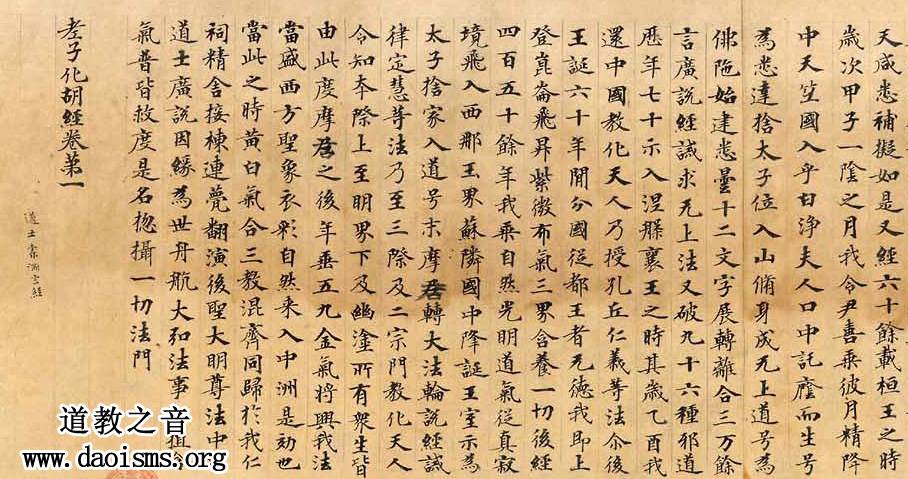 天咸悉補擬如是又經六十餘載桓王之時
歲次甲子一陰之月我令尹喜乘彼月精降
中天竺國入乎白淨夫人口中託廕而生号
為悉達捨太子位入山脩身成无上道号為
佛陁始建悉曇十二文字展轉離合三万餘
言廣說經誡求无上法又破九十六種邪道
歷年七十示入涅槃襄王之時其歲乙酉我
還中國教化天人乃授孔丘仁義等法尒後
王誕六十年閒分國從都王者无德我即上
登崑崙飛昇紫微布氣三界含養一切後經
四百五十餘年我乘自然光明道氣從真寂
境飛入西那玉界蘇隣國中降誕王室示為
太子捨家入道号末摩尼轉大法輪說經誡
律定慧等法乃至三際及二宗門教化天人
令知本際上至明界下及幽塗所有衆生皆
由此度摩尼之後年垂五九金氣將興我法
當盛西方聖象衣彩自然来入中洲是効也
當此之時黃白氣合三教混齊同歸於我仁
祠精舍接棟連甍翻演後聖大明尊法中
道士廣說因緣為世舟航大弘法事
氣普皆救度是名揔攝一切法門
老子化胡經卷第一
道士索洞玄經
道教之音
www.daoisms.org